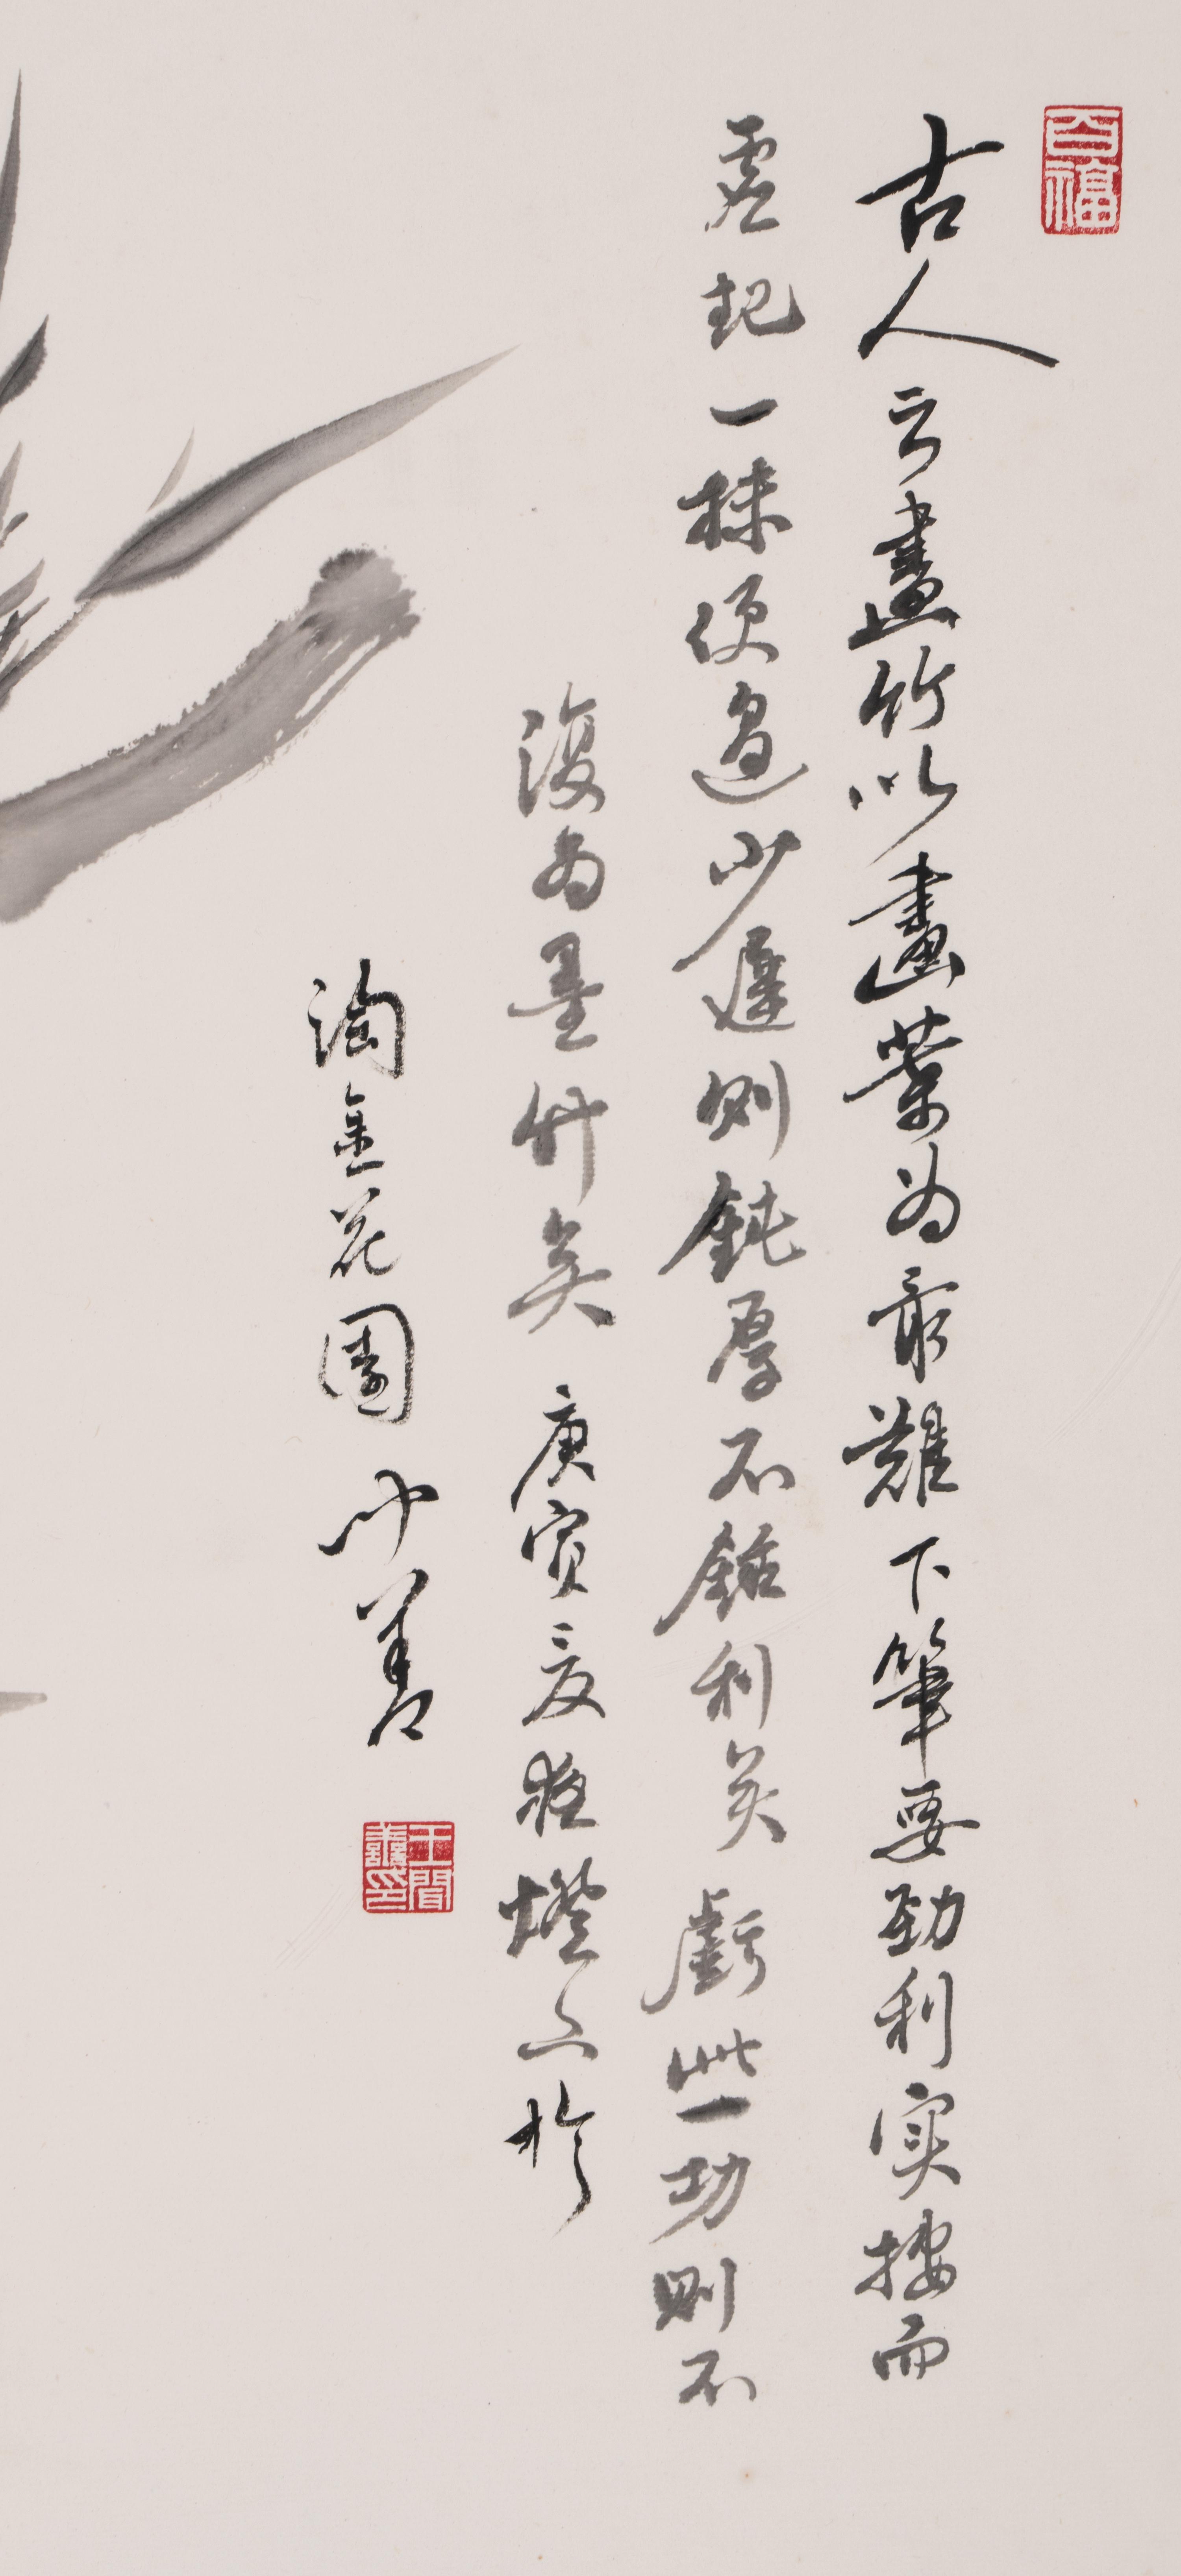 百福
古人云畫竹以畫葉為最難下筆要勁利實按而
虛起一抹便過少遲則鈍厚不銛利矣虧此一功則不
復為墨竹矣 庚寅夏夜燈下於
淘金花園 善
王間善印